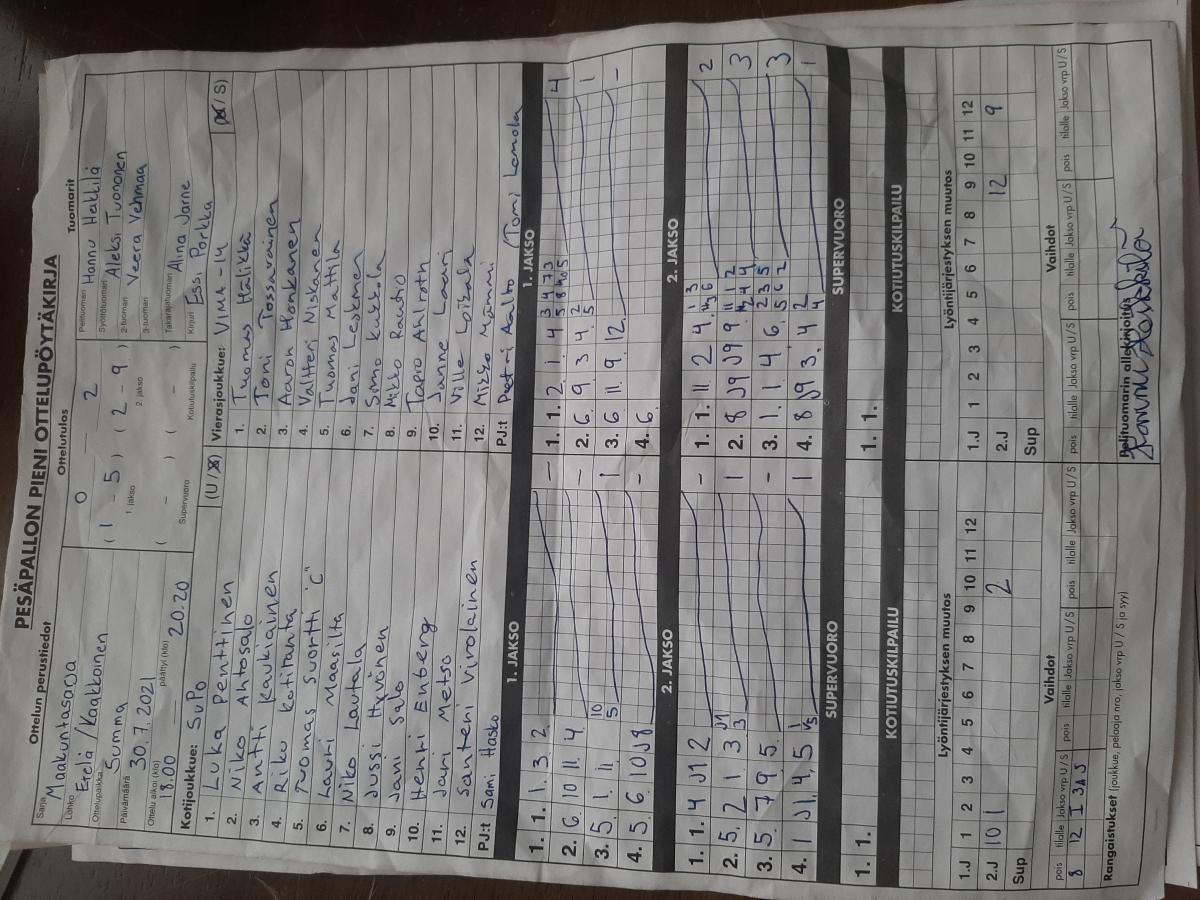 PESÄPALLON PIENI OTTELUPÖYTÄKIRJA
Ottelun perustiedot
Ottelutulos
Tuomarit
Sarja Maakuntasarja
Lohko Etelä/Kaakkoinen
Ottelupaikka Summa
Päivämäärä 30.7.2021
Ottelu alkoi (klo) 18.00 päättyi (klo) 20.20
0 2
( 1 - 5 ) ( 2 - 9 )
1. jakso 2. jakso
( - ) ( - )
Supervuoro Kotiutuskilpailu
Pelituomari Hannu Heikkilä
Syöttötuomari Aleksi Tuononen
2-tuomari Veera Vehmaa
3-tuomari
Takarajatuomari Alina Jarne
Kirjuri Essi Porkka
Kotijoukkue: SuPo (U / S)
1. Luka Penttinen
2. Niko Ahtosalo
3. Antti Kaukiainen
4. Riku Katiranta
5. Tuomas Suortti "C"
6. Lauri Maasilta
7. Niko Lautala
8. Jussi Hyvönen
9. Jani Salo
10. Henri Enberg
11. Jani Metso
12. Santeri Virolainen
PJ:t Sami Hasko
Vierasjoukkue: VIMA-14 (U / S)
1. Tuomas Hälikkä
2. Toni Tossavainen
3. Aaron Honkanen
4. Valtteri Niskanen
5. Tuomas Mattila
6. Jani Leskinen
7. Simo Kukkola
8. Mikko Rautio
9. Tapio Ahlroth
10. Janne Laari
11. Ville Loikala
12. Mikko Mämmi
PJ:t Petri Aalto / Tomi Lamola
1. JAKSO
1. 1. 1. 3. 2 –
2. 6. 10 11 4. –
3. 5. 1. 11 10 5 1
4. 5. 6. 10 J8 –
1. JAKSO
1. 1. 2. 1. 4 4
2. 6. 9 3 4. 2 5 1
3. 6 11. 9. 12. –
4. 6.
2. JAKSO
1. 1. 4 J1 2 –
2. 5. 2 1. 3 J1 3 1
3. 5. 7 9. 5. –
4. 1 J1 4, 5 1
2. JAKSO
1. 1. 11. 2 4. 2
2. 8 J9 J9 9. 3
3. 1. 1. 4 6. 3
4. 8 J9 3. 4 2 4 1
SUPERVUORO
1. 1.
SUPERVUORO
1. 1.
KOTIUTUSKILPAILU
KOTIUTUSKILPAILU
Lyöntijärjestyksen muutos
1.J 1 2 3 4 5 6 7 8 9 10 11 12
2.J 10 1 2
Sup
Lyöntijärjestyksen muutos
1.J 1 2 3 4 5 6 7 8 9 10 11 12
2.J 12 9
Sup
Vaihdot
pois tilalle Jakso vrp U / S pois tilalle Jakso vrp U / S pois tilalle Jakso vrp U / S
8 12 I 3A S
Vaihdot
pois tilalle Jakso vrp U / S pois tilalle Jakso vrp U / S pois tilalle Jakso vrp U / S
Rangaistukset (joukkue, pelaaja nro, jakso vrp U / S ja syy)
Pelituomarin allekirjoitus